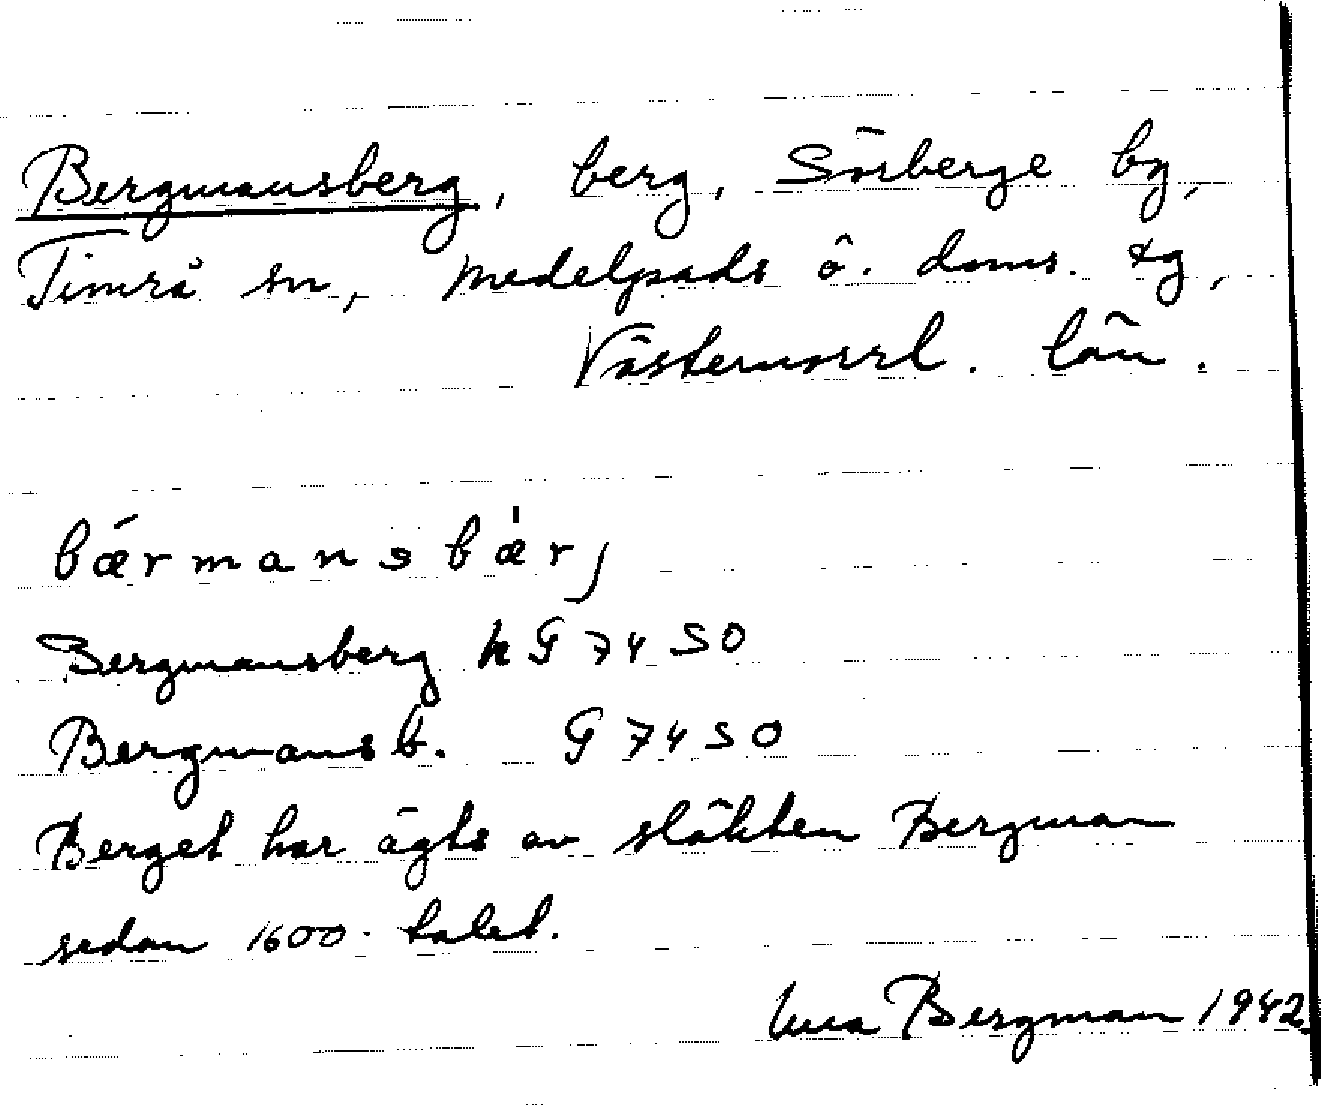 Bergmansberg, berg, Sörberge by,
Timrå sn, Medelpads ö. doms. tg,
Västernorrl. län.
bǽrmansbæ̍rj
Bergmansberg h G 74 SO
Bergmansb. G 74 SO
Berget har ägts av släkten Bergman
sedan 1600-talet.
Bergman 1942